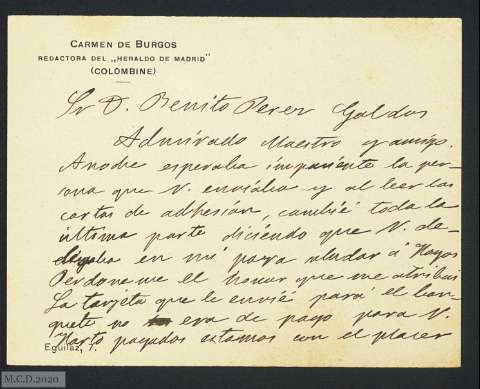 CARMEN DE BURGOS
REDACTORA DEL „HERALDO DE MADRID"
(COLOMBINE)
Sr D. Benito Perez Galdos
Admirado Maestro y amigo.
Anoche esperaba impaciente la per-
sona que V. enviaba y al leer las
cartas de adhesión, cambié toda la
última parte diciendo que V. de-
en mi para saludar á Hoyos
Perdoneme el honor que me atribui
La tarjeta que le envié para el ban-
quete no era de pago para V.
Harto pagados estamos con el placer
Eguilaz, 7.
M.C.D.2020